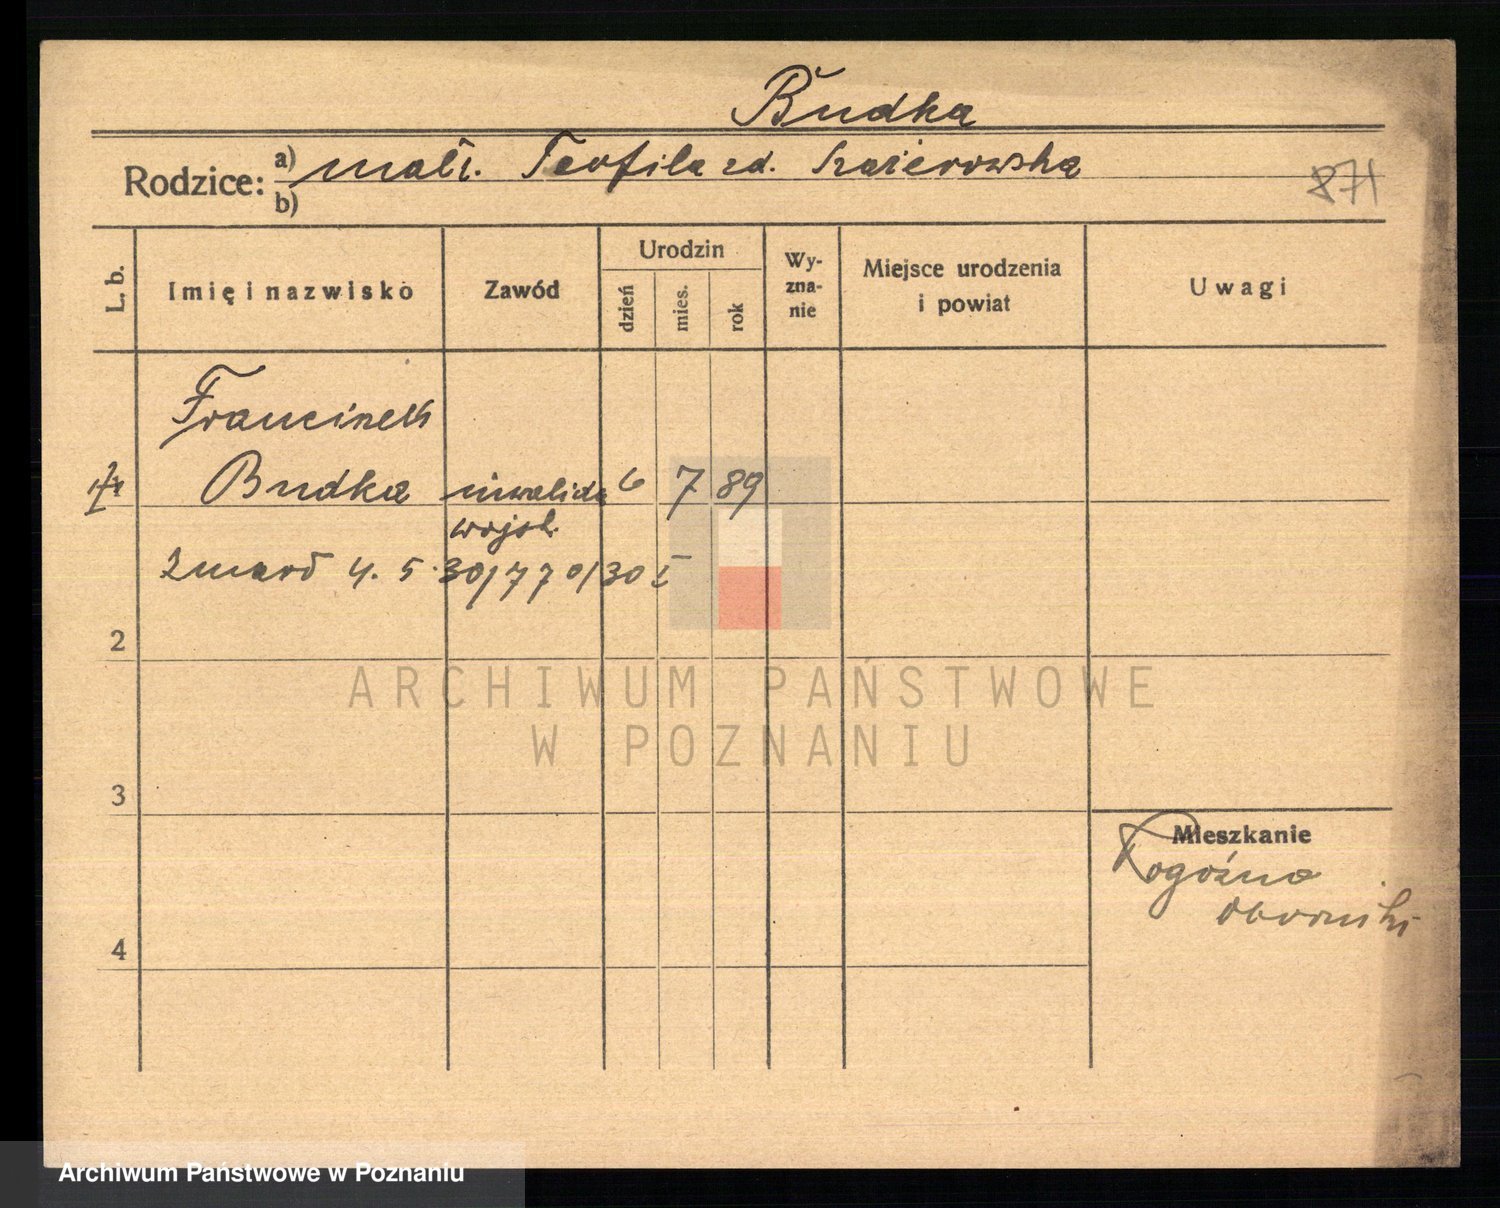 Budka
Rodzice: a) małż. Teofila zd. Kazierowska
b)
871
L. b.
Imię i nazwisko
Zawód
Urodzin
dzień
mies.
rok
Wy-
zna-
nie
Miejsce urodzenia
i powiat
Uwagi
Franciszek
Budka inwalida 6 7 89
wojsk.
zmarł 4. 5. 30/770/30 I
2
ARCHIWUM PAŃSTWOWE
W POZNANIU
3
Mieszkanie
Rogoźno
Oborniki
4
Archiwum Państwowe w Poznaniu